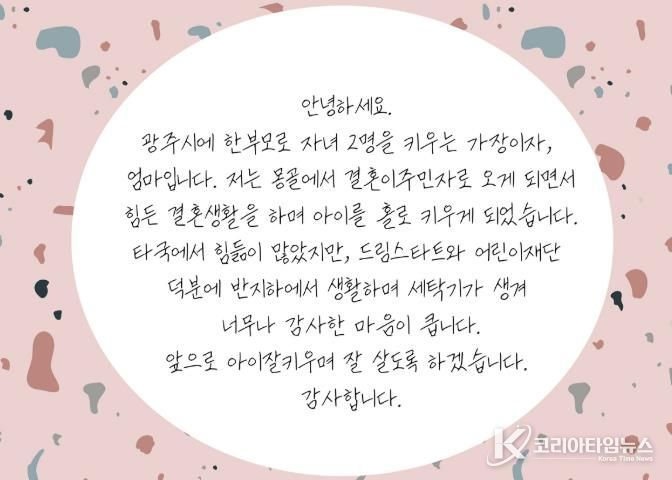 안녕하세요.
광주시에 한부모로 자녀 2명을 키우는 가장이자,
엄마입니다. 저는 몽골에서 결혼이주민자로 오게 되면서
힘든 결혼생활을 하며 아이를 홀로 키우게 되었습니다.
타국에서 힘듦이 많았지만, 드림스타트와 어린이재단
덕분에 반지하에서 생활하며 세탁기가 생겨
너무나 감사한 마음이 큽니다.
앞으로 아이잘키우며 잘 살도록 하겠습니다.
감사합니다.
K 코리아타임뉴스
Korea Time News